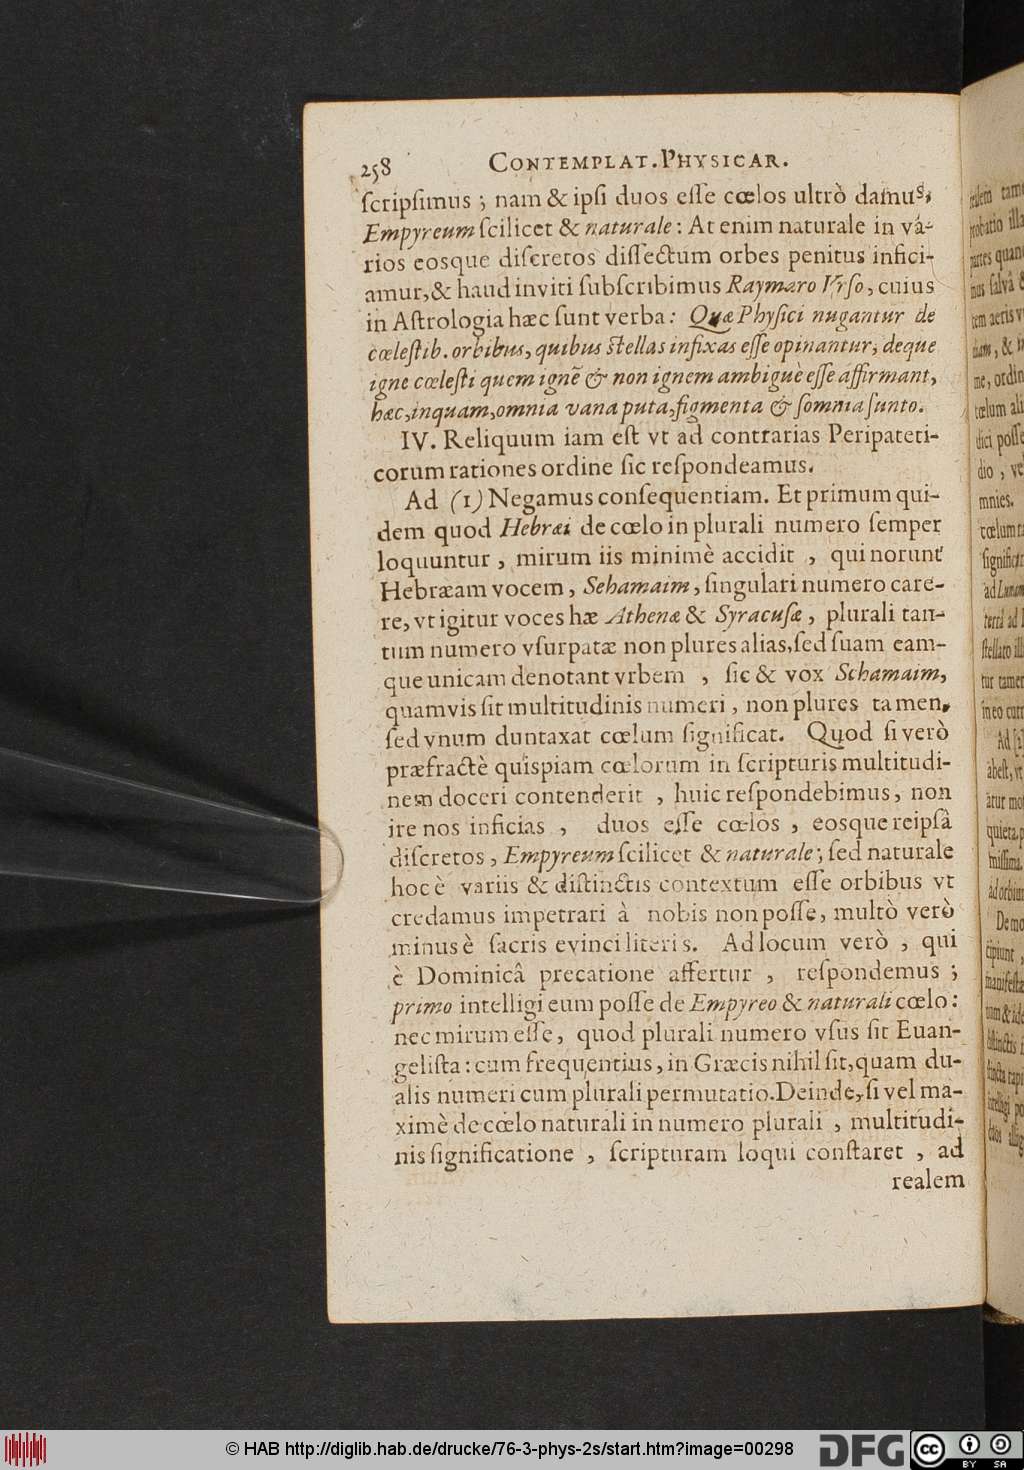 258 CONTEMPLAT. PHYSICAR.
ſcripſimus ; nam & ipſi duos eſſe cœlos ultrò damus,
Empyreum ſcilicet & naturale : At enim naturale in vá-
rios eosque diſcretos diſſectum orbes penitus infici-
amur, & haud inviti ſubſcribimus Raymaro Vrſo, cuius
in Aſtrologia hæc ſunt verba : Quæ Phyſici nugantur de
cœleſtib. orbibus, quibus ſtellas infixas eſſe opinantur, deque
igne cœleſti quem ignē & non ignem ambiguè eſſe affirmant,
hæc, inquam, omnia vana puta, figmenta & ſomnia ſunto.
IV. Reliquum iam eſt vt ad contrarias Peripateti-
corum rationes ordine ſic reſpondeamus.
Ad (1) Negamus conſequentiam. Et primum qui-
dem quod Hebræi de cœlo in plurali numero ſemper
loquuntur , mirum iis minimè accidit , qui norunt
Hebræam vocem, Sehamaim, ſingulari numero care-
re, vt igitur voces hæ Athenæ & Syracuſæ , plurali tan-
tum numero vſurpatæ non plures alias, ſed ſuam eam-
que unicam denotant vrbem , ſic & vox Schamaim,
quamvis ſit multitudinis numeri , non plures tamen,
ſed vnum duntaxat cœlum ſignificat. Quod ſi verò
præfractè quispiam cœlorum in ſcripturis multitudi-
nem doceri contenderit , huic reſpondebimus, non
ire nos inficias , duos eſſe cœlos , eosque reipſâ
diſcretos, Empyreum ſcilicet & naturale ; ſed naturale
hoc è variis & diſtinctis contextum eſſe orbibus vt
credamus impetrari à nobis non poſſe, multò verò
minus è ſacris evinci literis. Ad locum verò , qui
è Dominicâ precatione affertur , reſpondemus ;
primo intelligi eum poſſe de Empyreo & naturali cœlo :
nec mirum eſſe, quod plurali numero vſus ſit Euan-
geliſta : cum frequentius, in Græcis nihil ſit, quam du-
alis numeri cum plurali permutatio. Deinde, ſi vel ma-
ximè de cœlo naturali in numero plurali , multitudi-
nis ſignificatione , ſcripturam loqui conſtaret , ad
realem
© HAB http://diglib.hab.de/drucke/76-3-phys-2s/start.htm?image=00298
DFG
cc BY SA